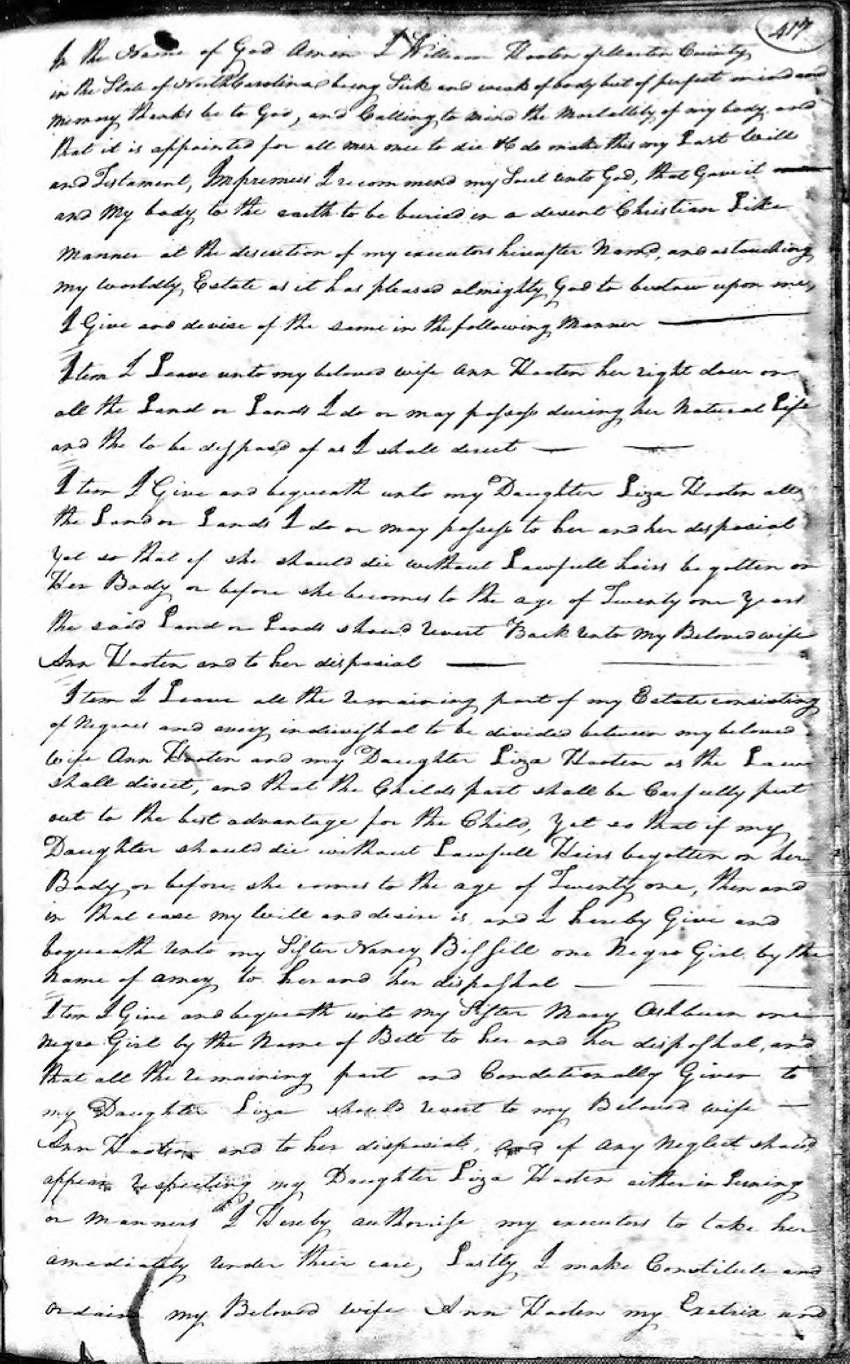 417
In the Name of God Amen I William Hooten of Martin County
in the State of North Carolina being Sick and weak of body but of perfect mind and
memory thanks be to God, and Calling to mind the Mortallity of my body and
that it is appointed for all men once to die do make this my Last Will
and Testament, Impremeis I recommend my Soul unto God, that Gave it
and My body to the earth to be buried in a desent Christian Like
Manner at the discretion of my executors hereafter Named, and as touching
my worldly Estate as it has pleased almighty God to bestow upon me,
I Give and devise of the same in the following Manner
Item I Leave unto my beloved wife Ann Hooten her right dower on
all the Land or Lands I do or may possess during her Natural Life
and the to be disposed of as I shall direct
Item I Give and bequeath unto my Daughter Liza Hooten all
the Land or Lands I do or may possess to her and her desposial
Yet so that if she should die without Lawfull heirs begotten on
Her Body or before she becomes to the age of Twenty one Years
the said Land or Lands should revert Back unto My Beloved wife
Ann Hooten and to her disposial
Item I Leave all the remaining part of my Estate consisting
of Negroes and every to be divided between my beloved
wife Ann Hooten and my Daughter Liza Hooten as the Law
shall direct, and that the Childs part shall be Carfully put
out to the best advantage for the Child, Yet so that if my
Daughter should die without Lawfull Heirs begotten on her
Body or before she comes to the age of Twenty one, then and
in that case my Will and desire is and I hereby Give and
bequeath unto my Sister Nancy Bissell one Negro Girl by the
Name of Amey to her and her disposhal
Item I Give and bequeath unto my Sister Mary Ashburn one
Negro Girl by the Name of Bett to her and her disposhal, and
that all the remaining part and Condetionally Given to
my Daughter Liza should revert to my Beloved wife
Ann Hooten and to her disposial, and if any Neglect should
appear respecting my Daughter Liza Hooten either in Lerning
or manners I Hereby authorise my executors to take her
amediately under their care, Lastly I make Constitute and
ordain my Beloved wife Ann Hooten my Exetrix and